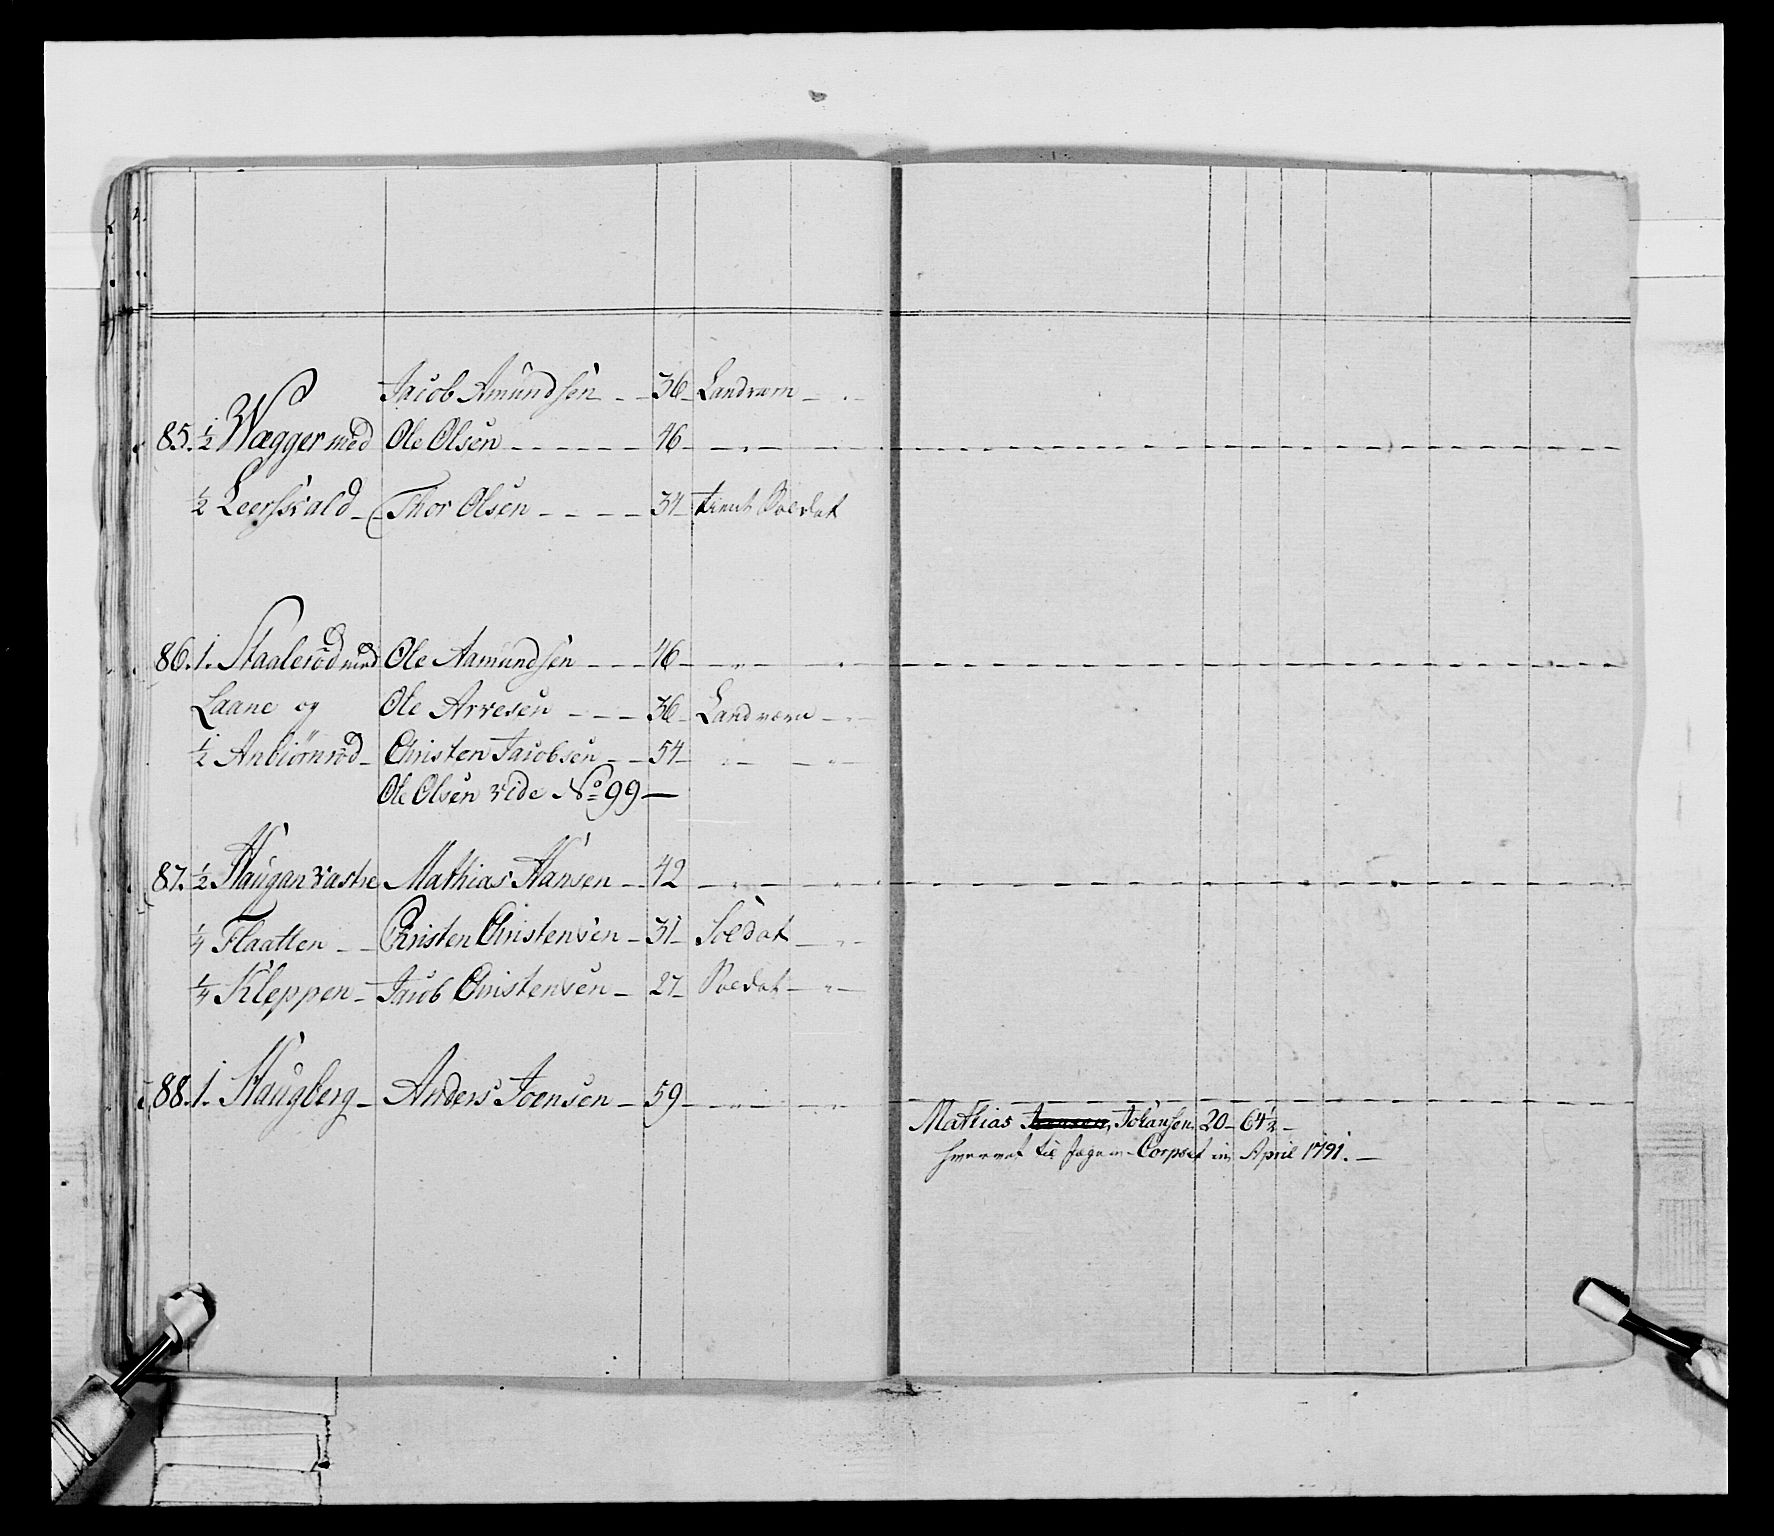 Jacob Amundsen - - 36 - Landværn - "
85. 1/2 Wægger med Ole Olsen - - - - - 46 - - " -
1/2 Leerskald - Thor Olsen - - - - 34 - tient Soldat
86. 1. Staalerød med Ole Aamundsen - - - 46 - - " - "
Laane og Ole Arvesen - - - 36 - Landværn - "
1/2 Anbiørnrød - Christen Jacobsen - - 54 - " - - " -
Ole Olsen vide No 99 -
87. 1/2 Haugan vastre Mathias Hansen - 42 - " - "
1/4 Flaatten - - Christen Christensen - 31 - Soldat - " -
1/4 Kleppen - Jacob Christensen - 27 - Soldat - " -
88. 1. Haugberg - Anders Joensen - 59 - - " - "
Mathias Johansen, 20 - 64 1/2 -
hværvet til Jæger-Corpset in April 1791. -